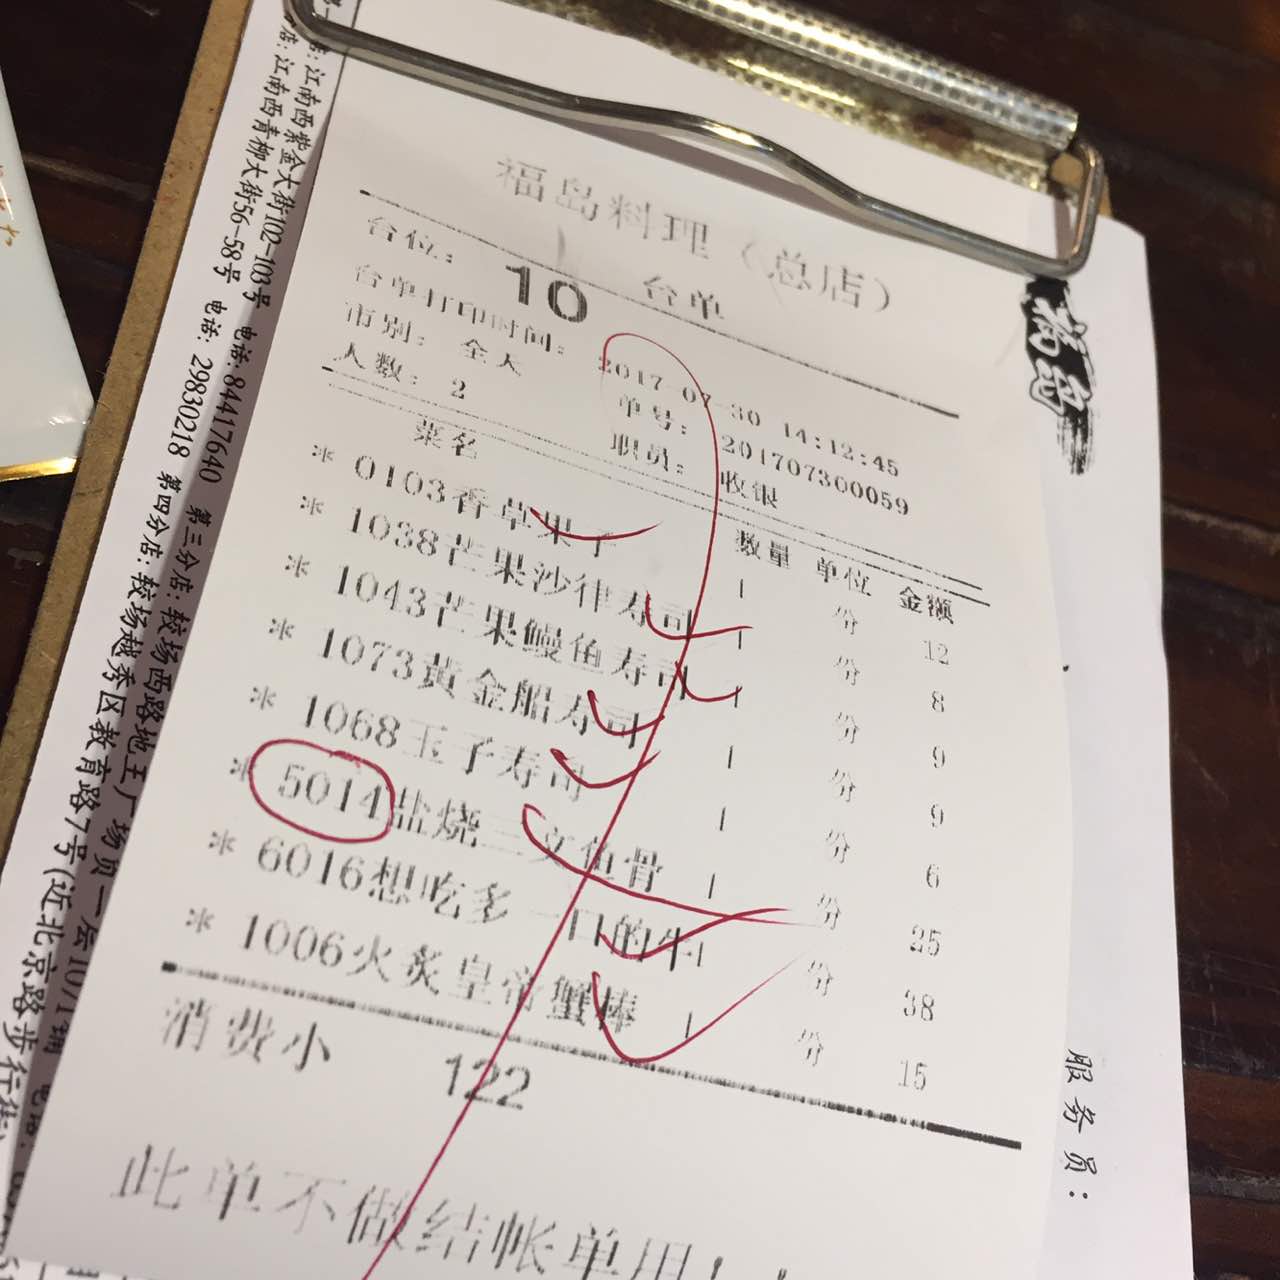 福岛料理（总店）
台单
台位： 10
台单打印时间： 2017-07-30 14:12:45
市别： 全天 单号： 201707300059
人数： 2 职员： 收银
菜名 数量 单位 金额
* 0103香草果子 1 份 12
* 1038芒果沙律寿司 1 份 8
* 1043芒果鳗鱼寿司 1 份 9
* 1073黄金船寿司 1 份 9
* 1068玉子寿司 1 份 6
* 5014盐烧三文鱼骨 1 份 25
* 6016想吃多一口的牛 1 份 38
* 1006火炙皇帝蟹棒 1 份 15
消费小 122
此单不做结帐单用！
福岛
服务员：
店：江南西紫金大街102-103号 电话：84417640 第三分店：较场西路地王广场负一层1071铺
店：江南西青柳大街56-58号 电话：29830218 第四分店：较场越秀区教育路7号(近北京路步行街)